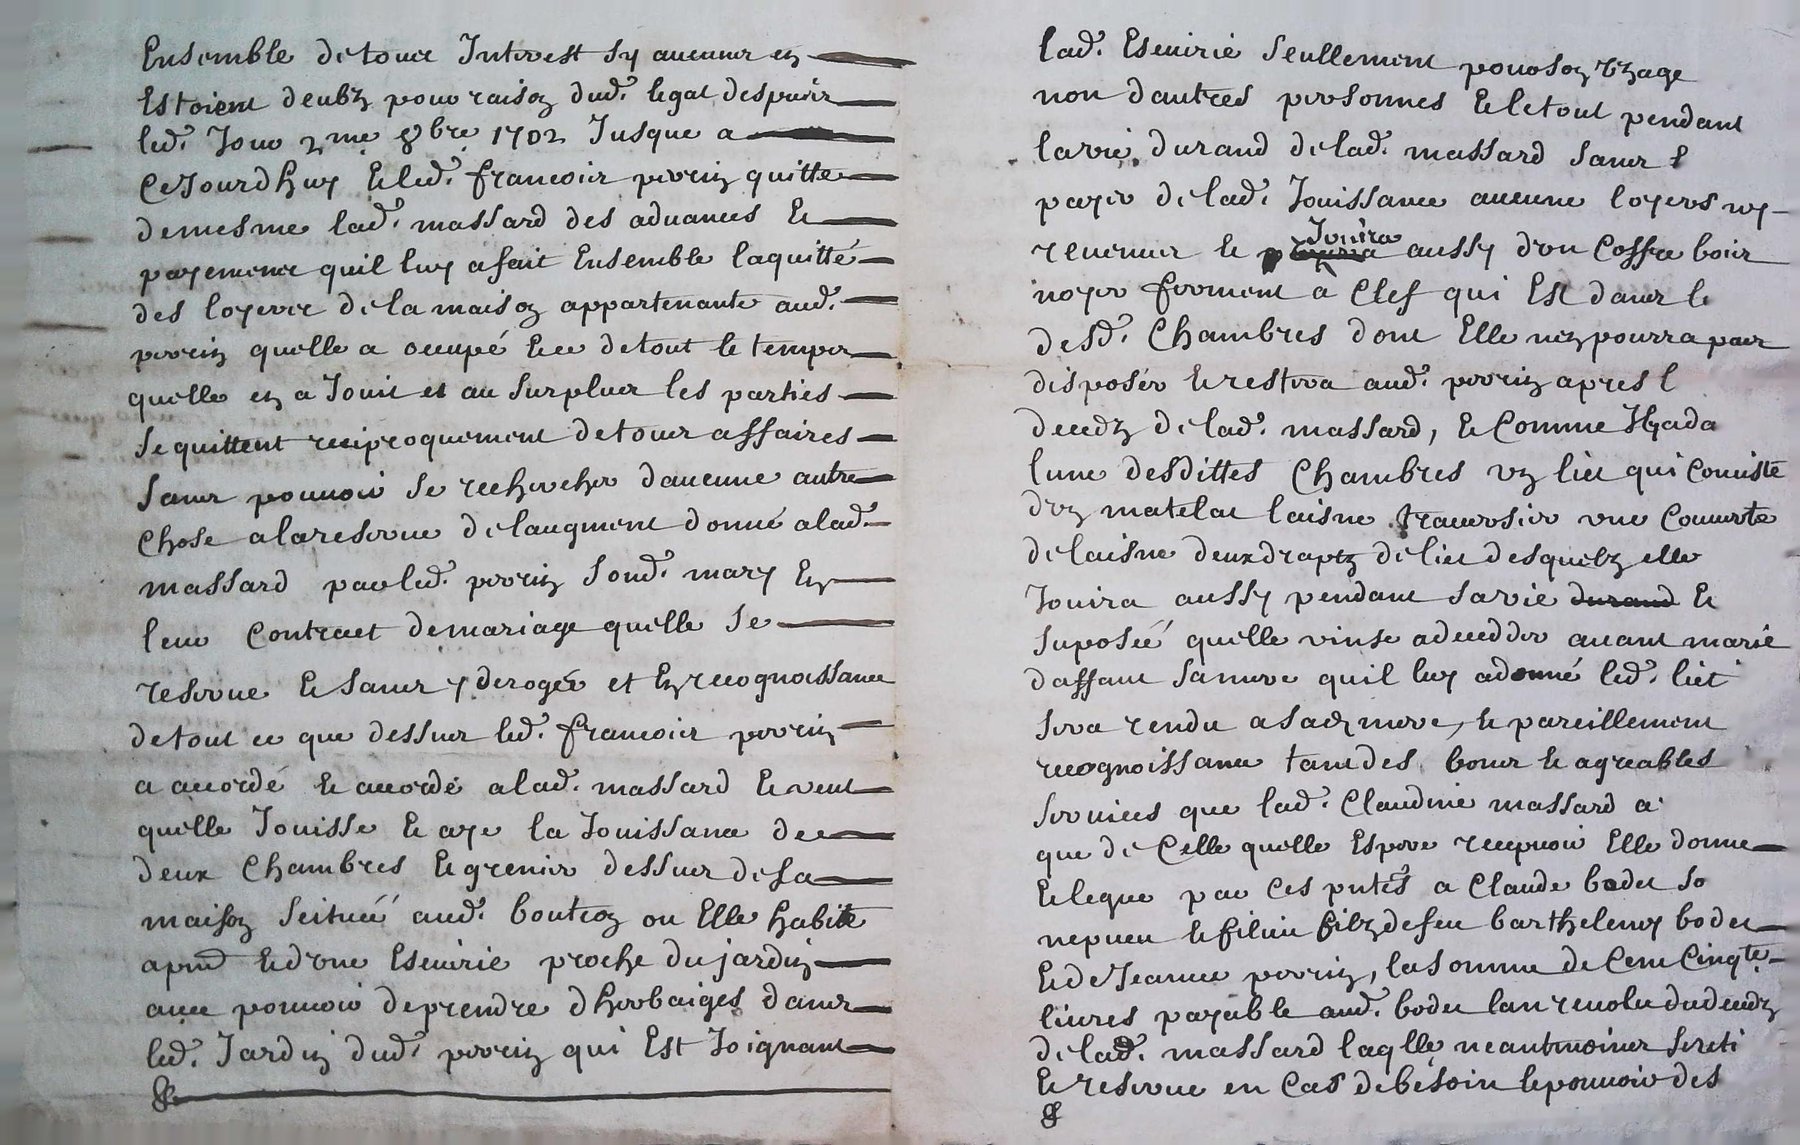 Ensemble detous Interest sy aucuns en
Estoient deubz pour raison dud. legat despuis
led. Jour 2me 8bre 1702 Jusque a
Cejourdhuy Et led. francois perrin quitte
demesme lad. massard des aduances Et
payements quil luy a fait Ensemble laquitte
des loyers dela maison appartenante aud.
perrin quelle a occupé Et detout le temps
quelle en a Jouit et au surplus les parties
se quittent reciproquement detous affaires
sans pouuoir se rechercher daucune autre
chose alareserue delaugment donné alad.
massard par led. perrin sond. mary En
leur contract demariage quelle se
reserue Et sans y derogér et En recognoissance
detout ce que dessus led. francois perrin
a accordé Et accorde alad. massard Et veut
quelle Jouisse Et aye la Jouissance de
deux chambres Et grenier dessus desa
maison seituéé aud. boutzon ou Elle habite
apnt Et dvne Escuirie proche du jardin
auec pouuoir deprendre dherbaiges dans
led. Jardin dud. perrin qui Est Joignant
lad. Escuirie seullement pour son vzage
non dautres personnes Et letout pendant
la vie durand delad. massard sans
payer delad. Jouissance aucune loyers ny
reuenus Et Jouira aussy dvn coffre bois
noyer ferment a clef qui Est dans le
desd. chambres dont Elle nen pourra pas
disposér Et restera aud. perrin apres l
decedz delad. massard, Et comme Ilyada
lune desdittes chambres vn lict qui conciste
dvn matelat laisne trauersier vne couuerte
delaisne deux drapts delict desquelz elle
Jouira aussy pendant savie durand Et
suposéé quelle vinse adeceder auant marie
daffaut sa mere quil luy adonné led. lict
sera rendu a sad. mere, Et pareillement
recognoissance tant des bons Et agreables
seruices que lad. Claudine massard a
que de celle quelle Espere recepuoir Elle donne
Et legue par ces pntes a Claude bodet so
nepueu Et filieu filz defeu barthelemy bodet
Et de Jeanne perrin, la somme de cent cinqte
liures payable aud. bodet lan reuolu dudecedz
delad. massard laqlle neantmoins
Et reserue en cas de bésoin le pouuoir des